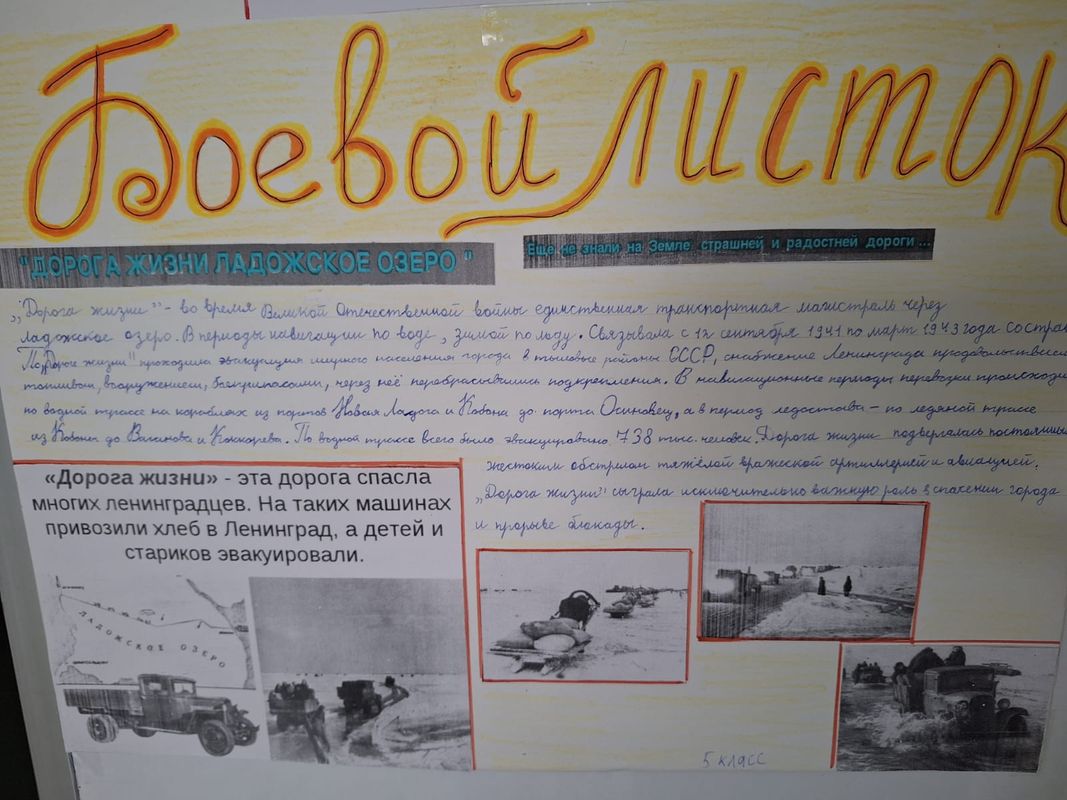 Боевой листок
"ДОРОГА ЖИЗНИ ЛАДОЖСКОЕ ОЗЕРО "
Еще не знали на Земле страшней и радостней дороги...
„Дорога жизни” - во время Великой Отечественной войны единственная транспортная магистраль через
Ладожское озеро. В периоды навигации по воде, зимой по льду. Связывала с 12 сентября 1941 по март 1943 года со стран
По „Дороге жизни" проходила эвакуация мирного населения города в тыловые районы СССР, снабжение Ленинграда продовольствием
топливом, вооружением, боеприпасами, через неё перебрасывались подкрепления. В навигационные периоды перевозки происходи
по водной трассе на кораблях из портов Новая Ладога и Кобона до порта Осиновец, а в период ледостава - по ледяной трассе
из Кобоны до Ваганова и Коккорева. По водной трассе всего было эвакуировано 738 тыс. человек. Дорога жизни подвергалась постоянным
жестоким обстрелам тяжёлой вражеской артиллерией и авиацией.
„Дорога жизни" сыграла исключительно важную роль в спасении города
и прорыве блокады.
«Дорога жизни» - эта дорога спасла
многих ленинградцев. На таких машинах
привозили хлеб в Ленинград, а детей и
стариков эвакуировали.
ЛАДОЖСКОЕ ОЗЕРО
5 класс